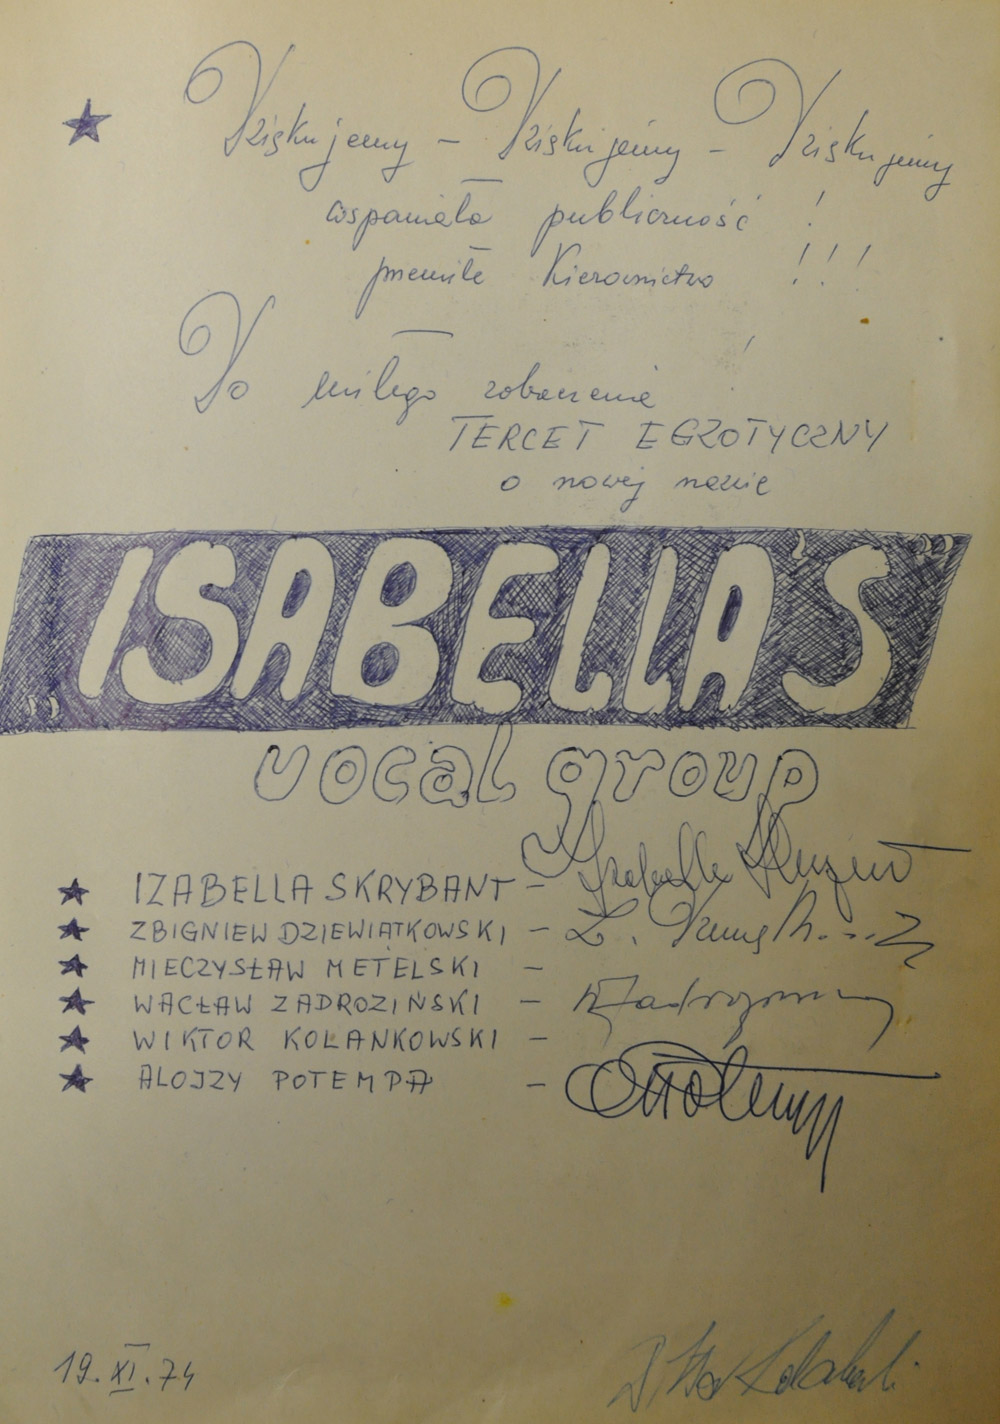 Dziękujemy – Dziękujemy – Dziękujemy
wspaniała publiczność !
przemiłe Kierownictwo !!!
Do miłego zobaczenia !
TERCET EGZOTYCZNY
o nowej nazwie
„ISABELLA'S”
vocal group
IZABELLA SKRYBANT – Izabella Skrybant
ZBIGNIEW DZIEWIATKOWSKI – Z.
MIECZYSŁAW METELSKI –
WACŁAW ZADROZIŃSKI –
WIKTOR KOLANKOWSKI –
ALOJZY POTEMPA –
19.XI.74